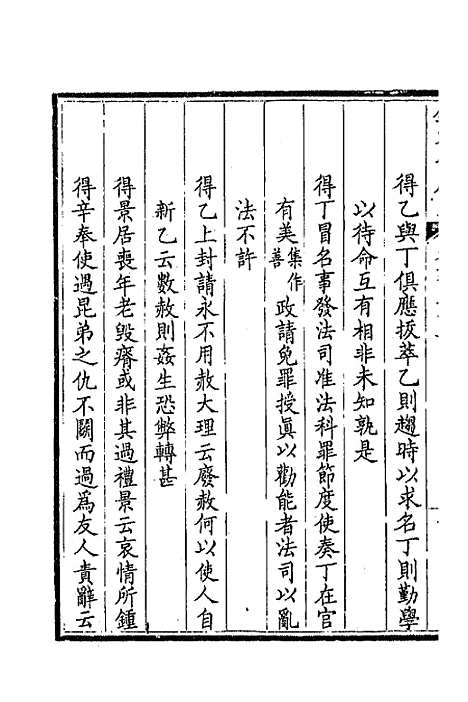 得乙與丁俱應拔萃乙則趨時以求名丁則勤學
以待命互有相非未知孰是
得丁冒名事發法司准法科罪節度使奏丁在官
有美集作善政請免罪授眞以勸能者法司以亂
法不許
得乙上封請永不用赦大理云廢赦何以使人自
新乙云數赦則姦生恐弊轉甚
得景居喪年老毀瘠或非其過禮景云哀情所鍾
得辛奉使遇昆弟之仇不鬭而過爲友人責辭云